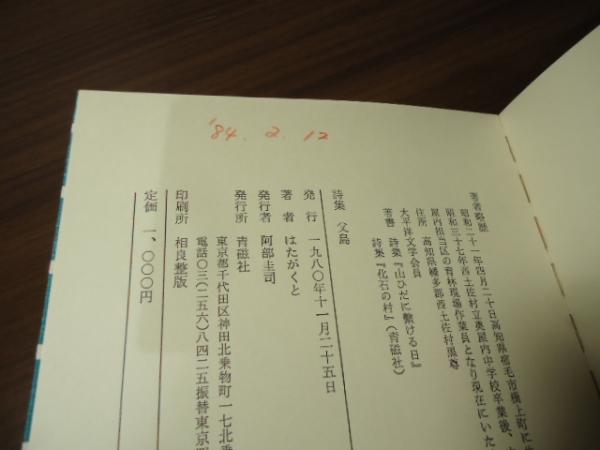 '84. 2. 12
著者略歴
昭和二十一年四月二十日高知県宿毛市橋上町に
昭和三十七年西土佐村立奥屋内中学校卒業後、
屋内担当区の育林現場作業員となり現在にいた
住所 高知県幡多郡西土佐村黒尊
太平洋文学会員
著書 詩集『山ひだに繋ける日』
詩集『化石の村』(青磁社)
詩集 父島
発行 一九八〇年十一月二十五日
著者 はたがくと
発行者 阿部圭司
発行所 青磁社
東京都千代田区神田北乗物町一七北乗
電話〇三(二五六)八四二五振替東京四
印刷所 相良整版
定価 一、〇〇〇円